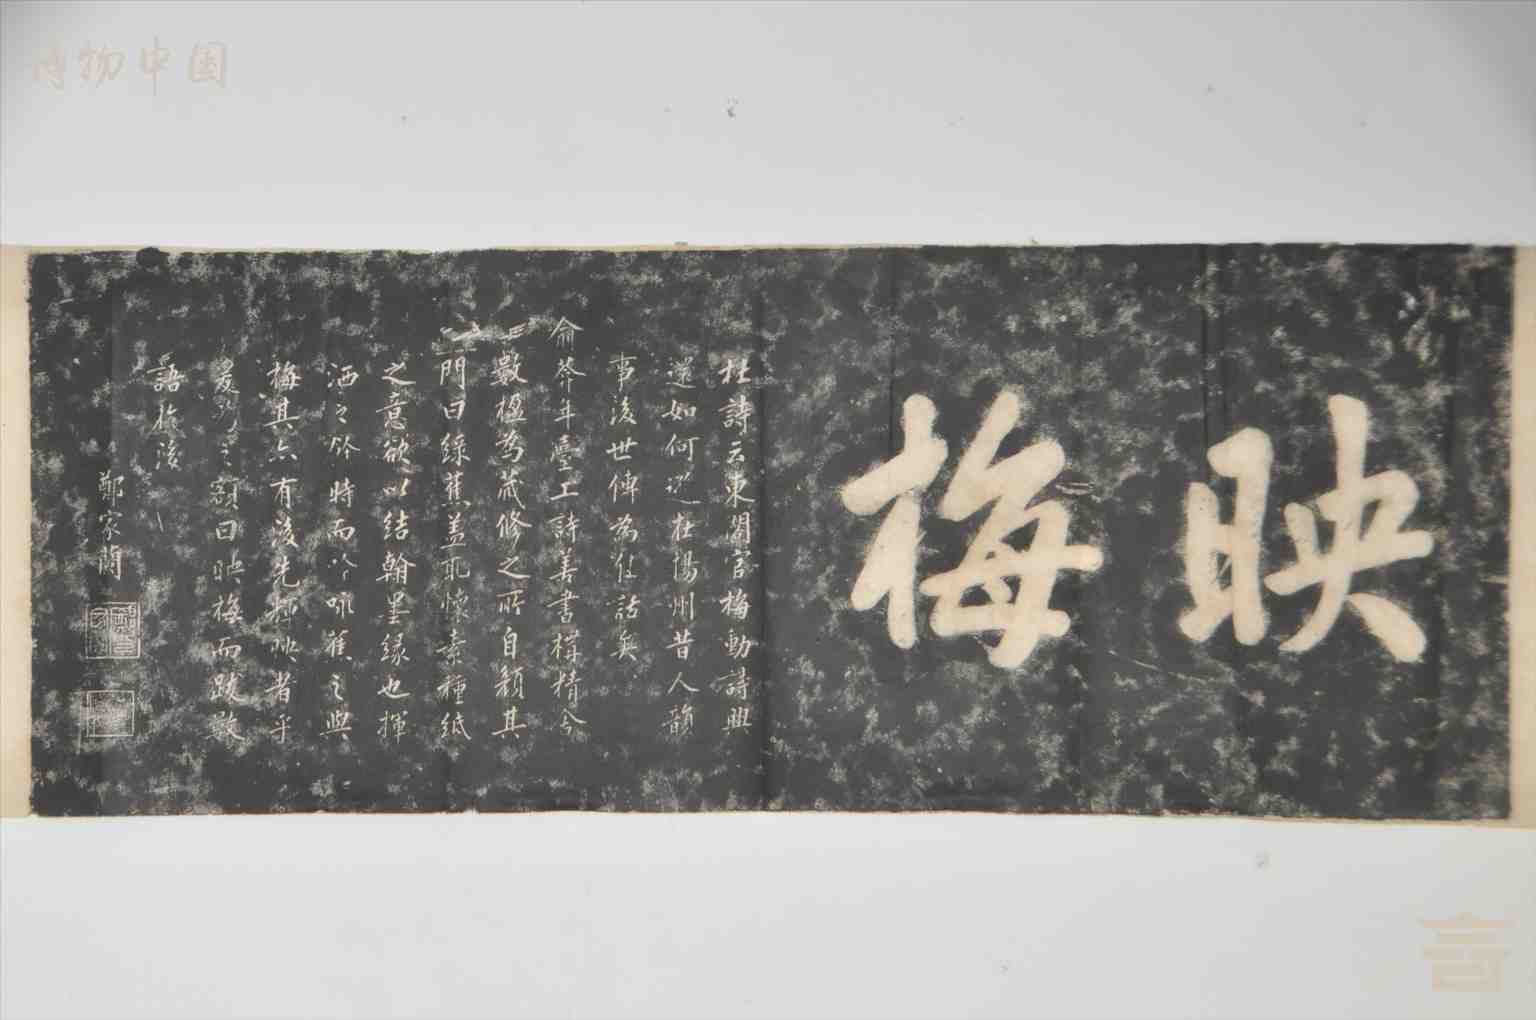 映梅
杜詩云東閣官梅動詩興
還如何遜在揚州昔人韻
事後世傳為佳話矣
俞莽年臺工詩善書構精舍
數楹為藏修之所自顏其
門曰綠蕉蓋取懷素種紙
之意欲以結翰墨緣也揮
洒之餘時而吟咏蕉之與
梅其亦有後先輝映者乎
爰為之額曰映梅而跋數
語於後
鄭家蘭
博物中国